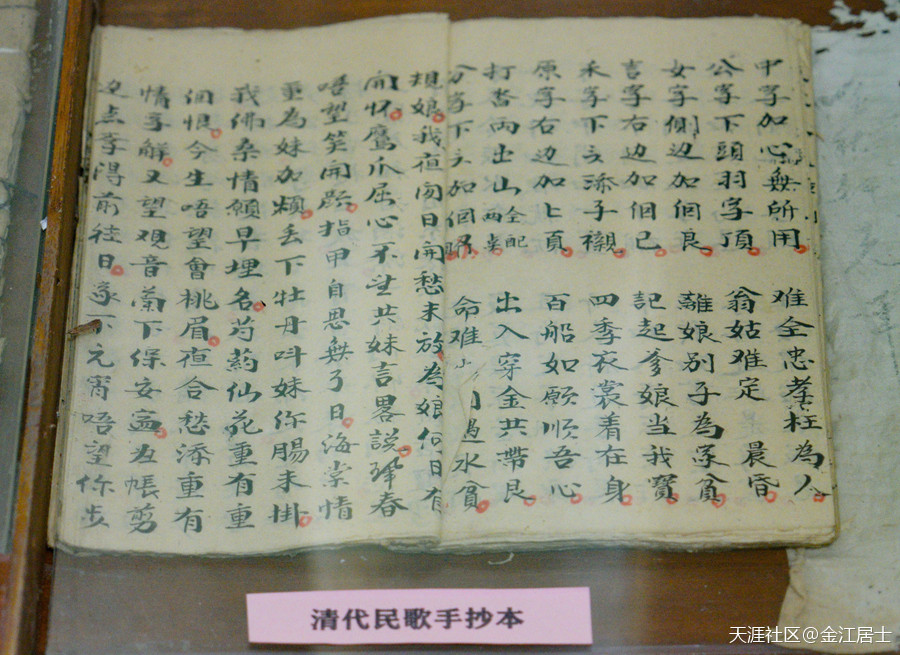 中字加心無所用 难全忠孝枉為人
公字下頭羽字頂 翁姑难定晨昏
女字側边加個良 離娘别子為家貧
言字右边加個己 記起爹娘当我寶
禾字下方添子襯 四季衣裳着在身
原字右边加上頁 百船如愿順吾心
打沓兩出山 出入穿金共帶艮
分字下方加個 命难 過水貧
規娘我夜间日間愁未放為娘何日有
開怀鷹爪屈心不望共妹言畧談 春
唔望笑開 指甲自思無了日海棠情
重為妹加煩丢下牡丹呌妹你腸未掛
我佛桑情願早埋名芍药仙花重有重
個恨今生唔望會桃眉夜合愁添重有
情字解又望观音蘭下保安 為帳剪
字得前 日 下元宵唔望你步
清代民歌手抄本
天涯社区@金江居士